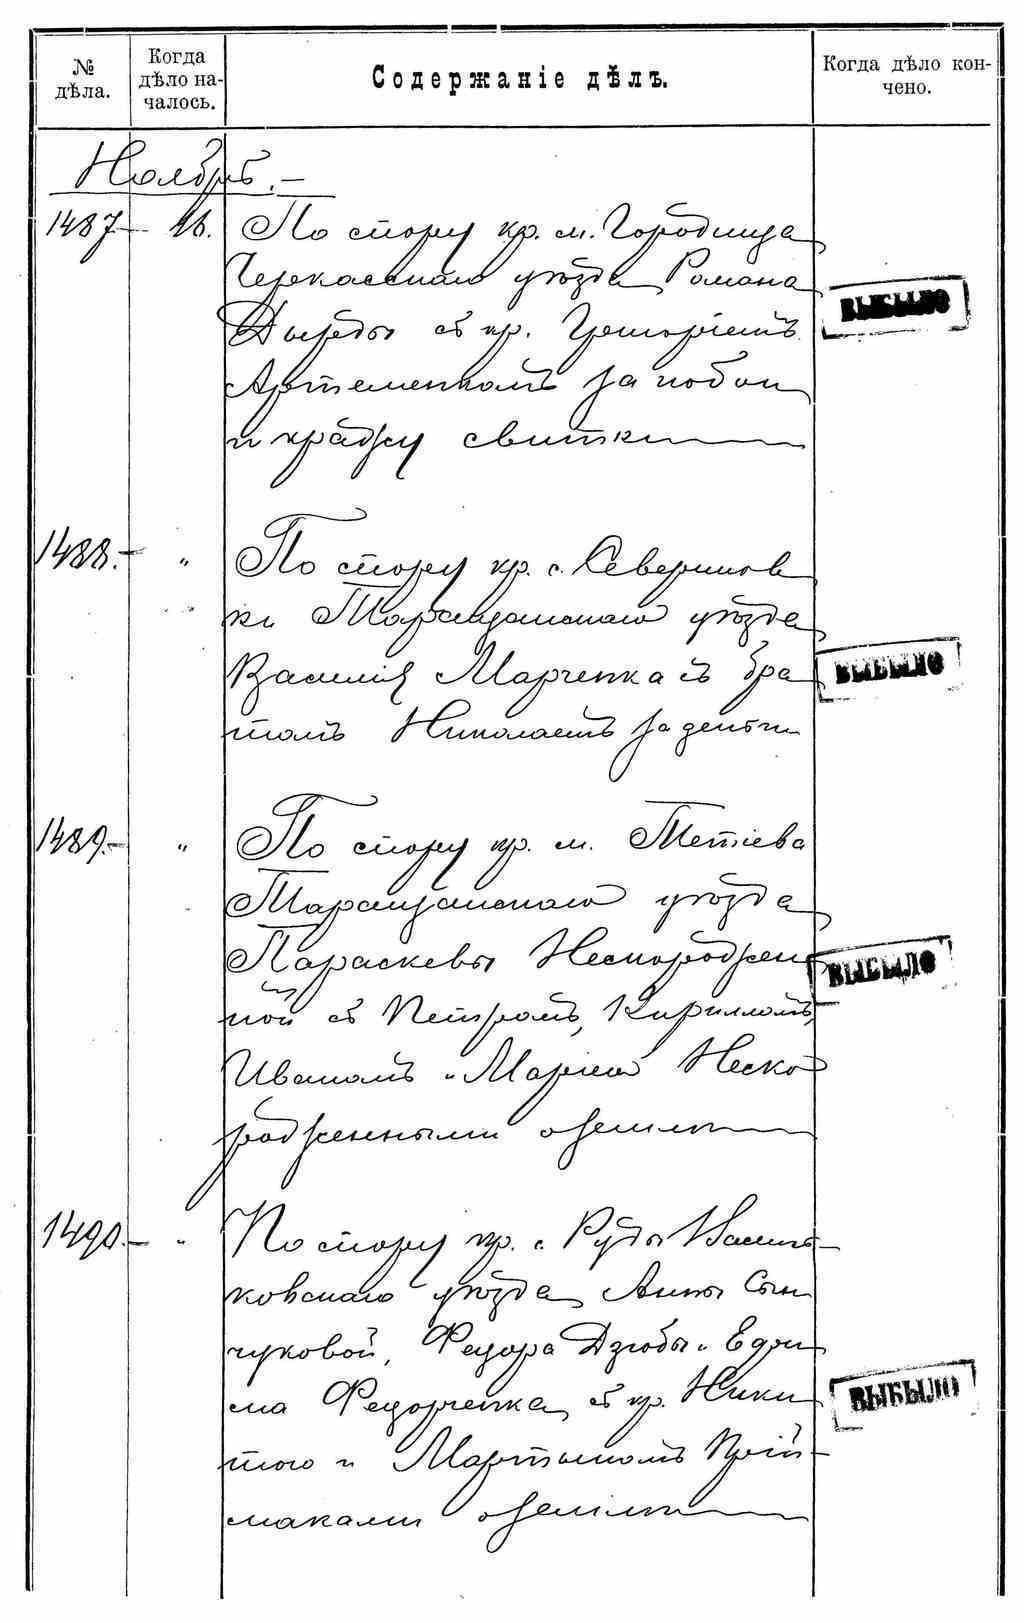 № дѣла.
Когда дѣло на-
чалось.
Содержаніе дѣлъ.
Когда дѣло кон-
чено.
Ноябрь.—
1487.— 16. По спору кр. м. Городища
Черкасскаго уѣзда Романа
Дыреды съ кр. Григоріемъ
Артеменкомъ за побои
и кражу свитки
ВЫБЫЛО
1488.— „ По спору кр. с. Северинов
ки Таращанскаго уѣзда
Василія Марченка съ бра
томъ Николаемъ за деньги
ВЫБЫЛО
1489.— „ По спору кр. м. Тетіева
Таращанскаго уѣзда
Параскевы Нескороджен
ной съ Петромъ, Кирилломъ,
Иваномъ и Маріею Неско
родженными о землѣ
ВЫБЫЛО
1490.— „ По спору кр. с. Руды Василь-
ковскаго уѣзда Анны Сын
чуковой, Федора Дзюбы и Ефи
ма Федорченка съ кр. Ники
тою и Мартыномъ Прій-
маками о землѣ
ВЫБЫЛО